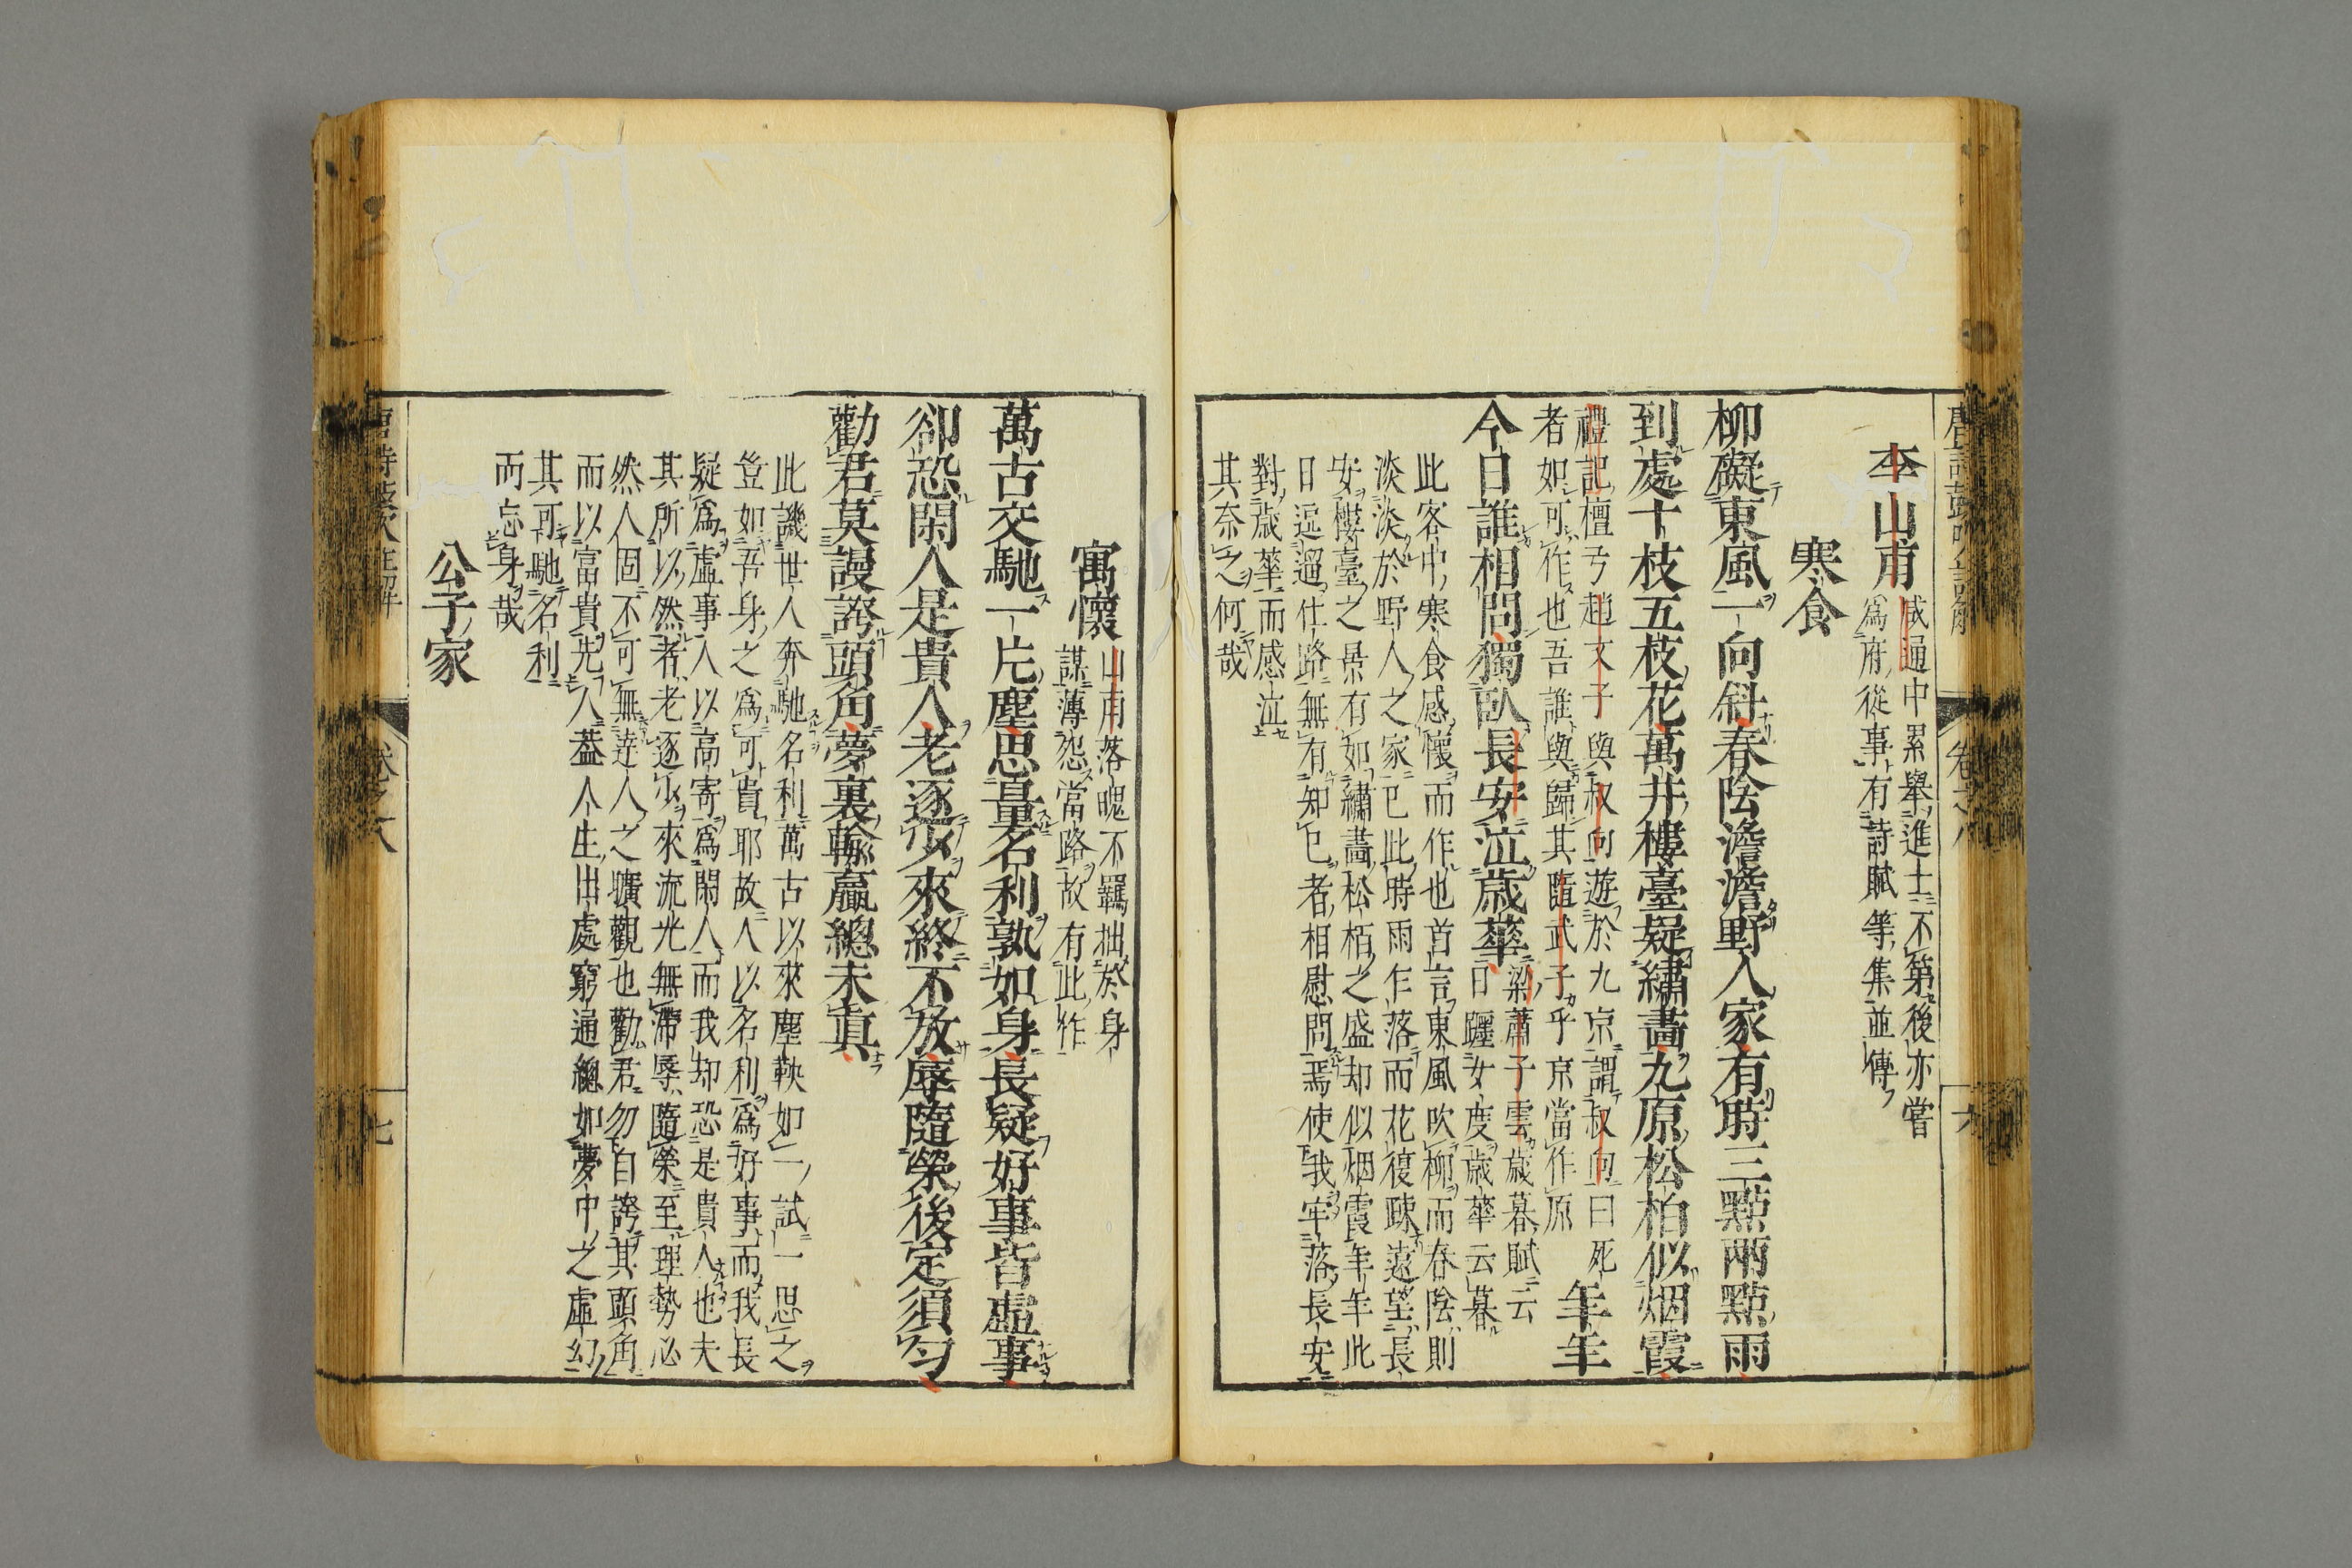 李山甫
咸通中累舉進士不第後亦嘗
爲府從事有詩賦等集並傳
寒食
柳礙東風一向斜春陰澹澹野人家有時三點兩點雨
到處十枝五枝花萬井樓臺疑繡畫九原松柏似烟霞
禮記檀弓趙文子與叔向遊於九京謂叔向曰死
者如可作也吾誰與歸其隨武子乎京當作原
年年
今日誰相問獨臥長安泣歲華
梁蕭子雲歲暮賦云
日躔女度歲華云暮
此客中寒食感懷而作也首言東風吹柳而春陰則
淡淡於野人之家已此時雨乍落而花復疎遠望長
安樓臺之景有如繡畵松栢之盛却似烟霞年年此
日迍邅仕路無有知已者相慰問焉使我牢落長安
對歲華而感泣
其奈之何哉
寓懷
山甫落魄不羈拙於身
謀薄怨當路故有此作
萬古交馳一片塵思量名利孰如身長疑好事皆虛事
卻恐閑人是貴人老逐少來終不放辱隨榮後定須勻
勸君莫謾誇頭角夢裏輸贏總未眞
此譏世人奔馳名利萬古以來塵鞅如一試一思之
豈如吾身之爲可貴耶故人以名利爲好事而我長
疑爲虛事人以高寄爲閑人而我却恐是貴人也夫
其所以然者老逐少來流光無滯辱隨榮至理勢必
然人固不可無達人之曠觀也勸君勿自誇其頭角
而以富貴先人葢人生出處窮通總如夢中之虛幻
其可馳名利
而忘身哉
公子家
卷之八
七